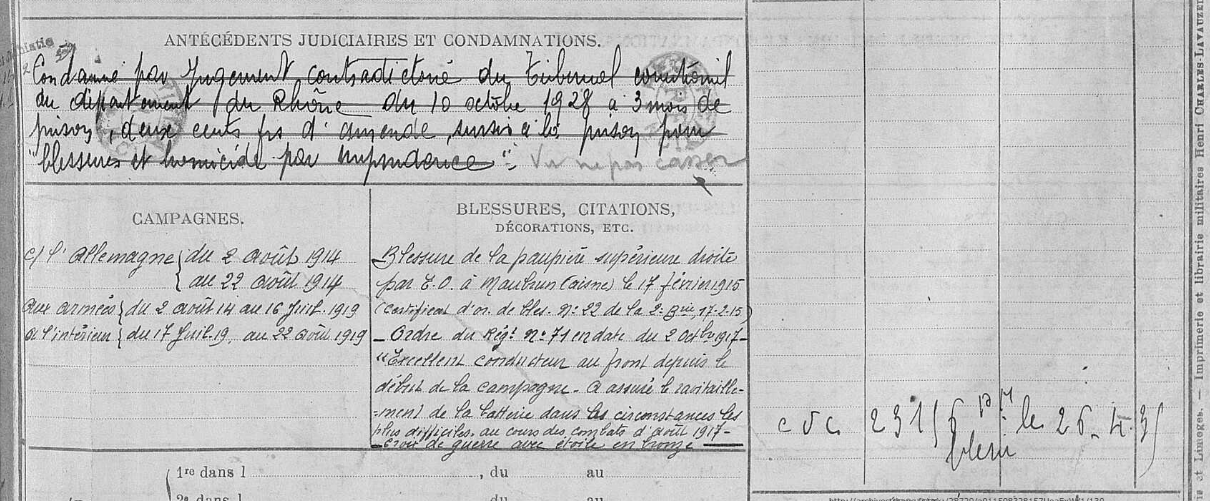 ANTÉCÉDENTS JUDICIAIRES ET CONDAMNATIONS.
Condamné par Jugement contradictoire du Tribunal
du département du Rhône du 10 octobre 1928 à 3 mois de
prison, deux cents frs d'amende, sursis à la prison pour
"blessures et homicide par imprudence" Vu ne pas casser
CAMPAGNES.
c/ l'Allemagne du 2 Août 1914
au 22 Août 1914
aux armées du 2 août 14 au 16 Juil. 1919
à l'intérieur du 17 Juil. 19, au 22 Août 1919
BLESSURES, CITATIONS,
DÉCORATIONS, ETC.
Blessure de la paupière supérieure droite
par E.O. à (aisne) le 17 février 1915
(Certificat d'or. de bles. N° 22 de la 2e Bie, 17-2-15)
- Ordre du Régt N° 71 en date du 2 Octbre 1917-
"Excellent conducteur au front depuis le
début de la campagne - A assuré le ravitaille-
-ment de la batterie dans les circonstances les
plus difficiles, au cours des combats d'Août 1917-
- Croix de guerre avec étoile en bronze -
1re dans l , du au
2e dans l , du au
231/6 le 26-4-3
Imprimerie et librairie militaires Henri CHARLES-LAVAUZEL
et Limoges. —